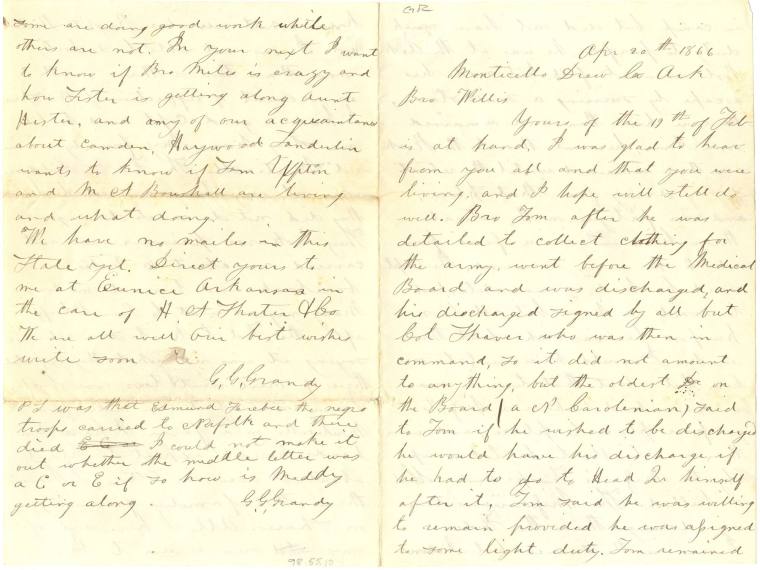 GR
Apr 20th 1866
Monticello Drew Co Ark
Bro Willis
Yours of the 19th of Feb
is at hand, I was glad to hear
from you all and that you were
living, and I hope will still do
well. Bro Tom after he was
detailed to collect clothing for
the army, went before the Medical
Board and was discharged, and
his discharged signed by all but
Col Thaver who was then in
command, so it did not amount
to anything, but the oldest Dr on
the Board (a N Carolenian) said
to Tom if he wished to be discharged
he would have his discharge if
he had to go to Head Qr himself
after it, Tom said he was willing
to remain provided he was assigned
to some light duty. Tom remained
some are doing good work while
others are not. In your next I want
to know if Bro Miles is crazy and
how Sister is getting along Aunt
Hester, and any of our acquaintance
about Camden, Haywood Sanderlin
wants to know if Tom Upton
and M A Boushell are living
and what doing.
We have no mailes in this
State yet. Direct yours to
me at Eunice Arkansas in
the care of H A Thater & Co
We are all well Our best wishes
write soon
G. G. Grandy
P S was that Edmund Ferebee the negro
troops carried to Nofolk and there
died I could not make it
out whether the middle letter was
a C or E if so how is Muddy
getting along. G G Grandy
98.55.10